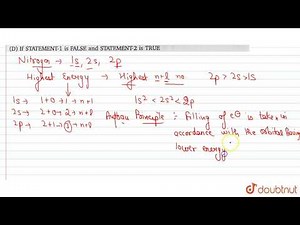 (D) If STATEMENT-1 is FALSE and STATEMENT-2 is TRUE
Nitrogen → 1s, 2s, 2p
Highest Energy → Highest n+l no 2p > 2s > 1s
1s → 1+0 → 1 → n+l 1s² < 2s² < 2p
2s → 2+0 → 2 → n+l Aufbau Principle : Filling of e⊖ is taken in
2p → 2+1 → 3 → n+l accordance with the orbitals having
lower energy
doubtnut